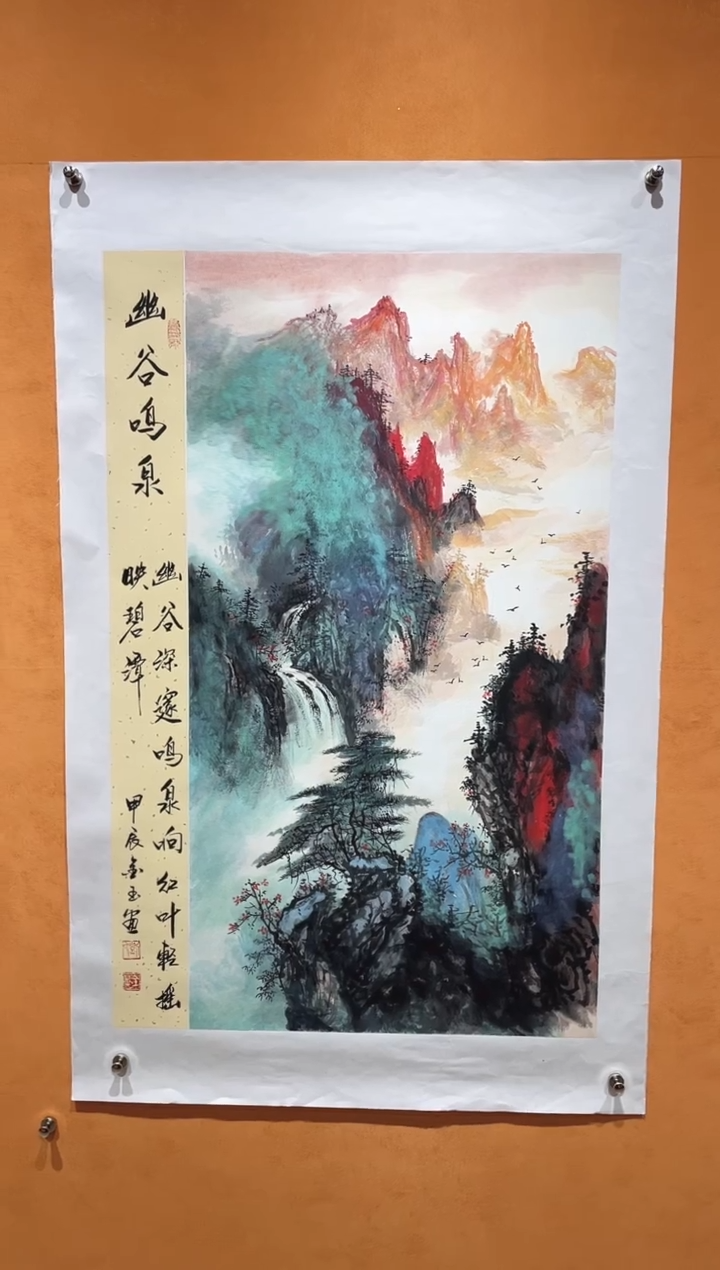 幽谷鸣泉
幽谷深邃鸣泉响红叶轻摇
映碧潭
甲辰金玉画